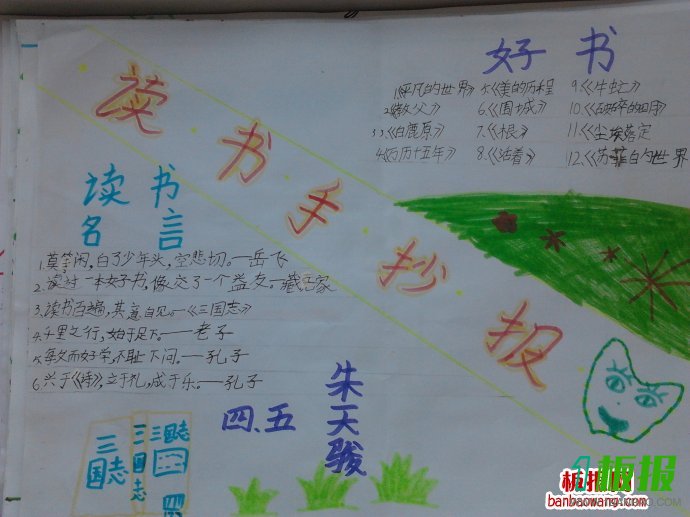 读书手抄报
好书
1.《平凡的世界》 5.《美的历程 9.《牛虻》
2.教父》 6.《围城》 10.《破碎的四月》
3.《白鹿原》 7.《根》 11.《尘埃落定
4.《万历十五年》 8.《活着》 12.《苏菲的世界
读书
名言
1.莫等闲,白了少年头,空悲切。——岳飞
2.读过一本好书,像交了一个益友。——藏克家
3.读书百遍,其意自见。——《三国志》
4.千里之行,始于足下。——老子
5.每文而好学,不耻下问。——孔子
6.兴于《诗》,立于礼,成于乐。——孔子
四、五
朱天骏
三国志
三国志
三国志
板报网
banbaowang.com
板报